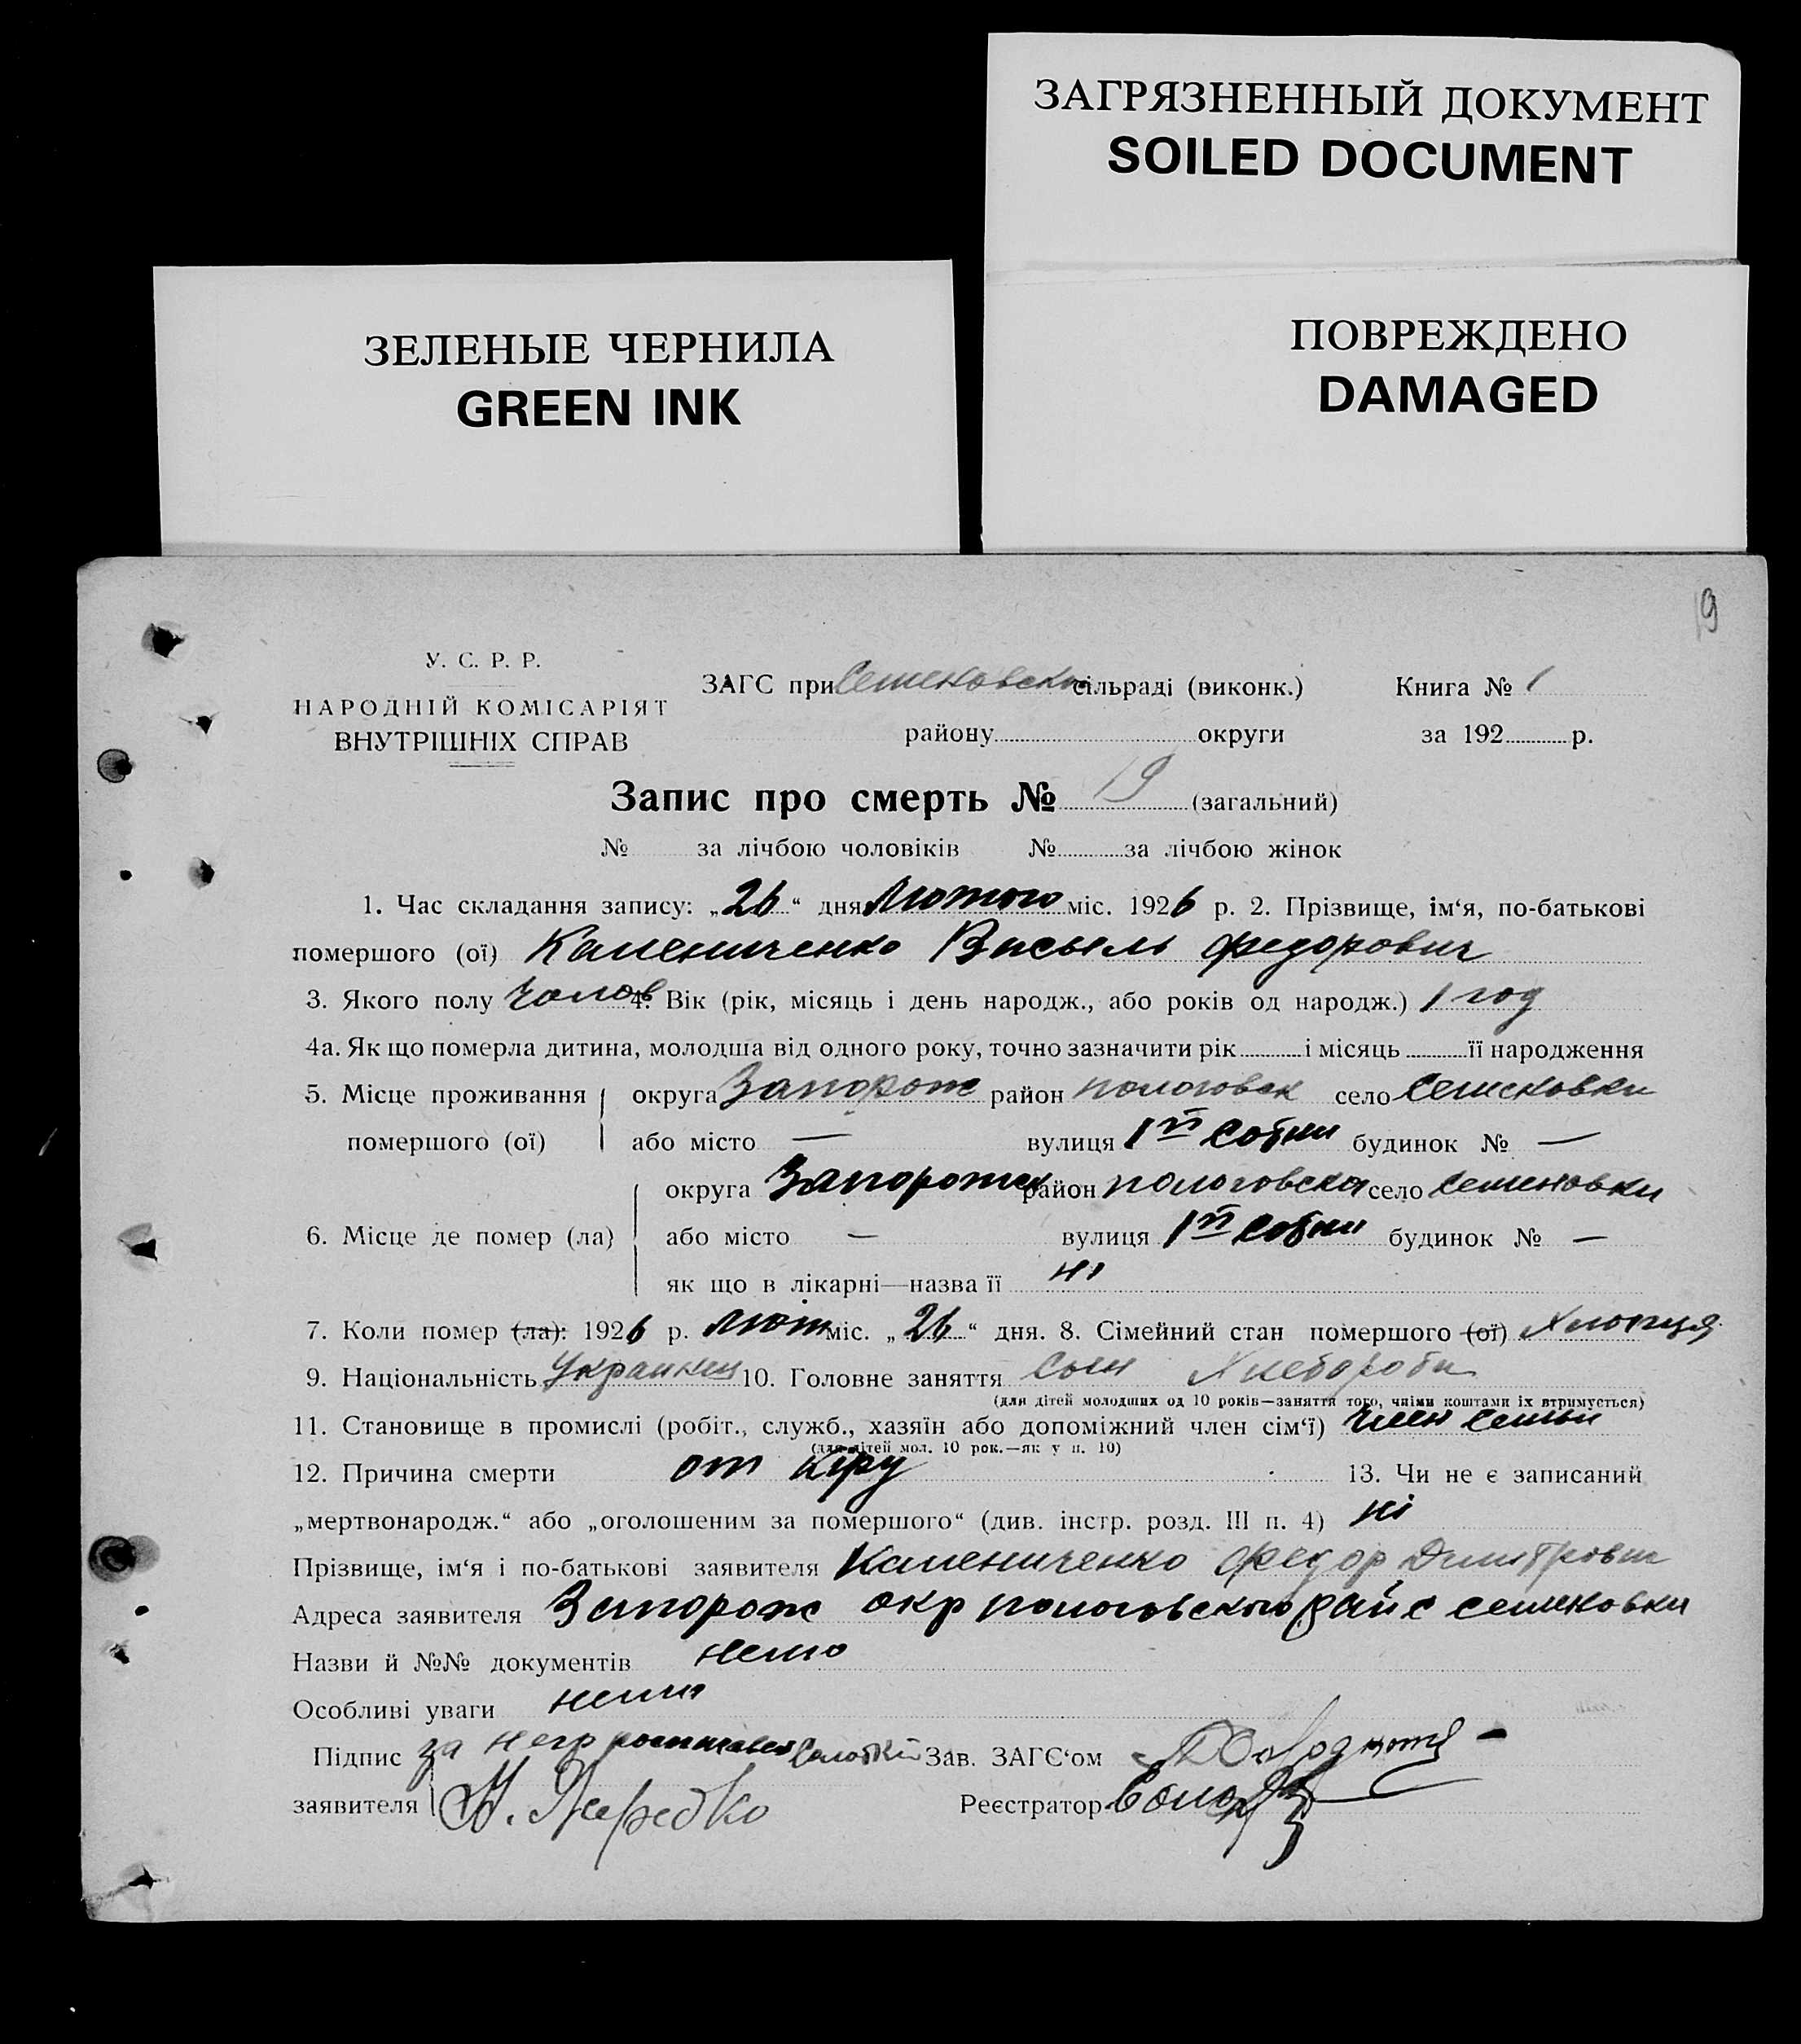 ЗАГРЯЗНЕННЫЙ ДОКУМЕНТ
SOILED DOCUMENT
ЗЕЛЕНЫЕ ЧЕРНИЛА
GREEN INK
ПОВРЕЖДЕНО
DAMAGED
19
У. С. Р. Р.
НАРОДНІЙ КОМІСАРІЯТ
ВНУТРІШНІХ СПРАВ
ЗАГС при Семеновск сільраді (виконк.) Книга № 1
району округи за 192 р.
Запис про смерть № 19 (загальний)
№ за лічбою чоловіків № за лічбою жінок
1. Час складання запису: „26“ дня Лютого міс. 1926 р. 2. Прізвище, ім‘я, по-батькові
помершого (ої) Камениченко Василь Федорович
3. Якого полу Чолов 4. Вік (рік, місяць і день народж., або років од народж.) 1 год
4а. Як що померла дитина, молодша від одного року, точно зазначити рік і місяць її народження
5. Місце проживання округа Запорож район пологовск село Семеновки
помершого (ої) або місто — вулиця 1й Сотни будинок № —
округа Запорожск район пологовска село Семеновки
6. Місце де помер (ла) або місто — вулиця 1й Сотни будинок № —
як що в лікарні—назва її ні
7. Коли помер (ла): 1926 р. лют міс. „26“ дня. 8. Сімейний стан помершого (ої) Хлопця
9. Національність Украинец 10. Головне заняття Сын Хлебороба
(для дітей молодших од 10 років—заняття того, чиїми коштами їх втримується)
11. Становище в промислі (робіт., служб., хазяїн або допоміжний член сім‘ї) член семьи
(для дітей мол. 10 рок.—як у п. 10)
12. Причина смерти от кіру 13. Чи не є записаний
„мертвонародж.“ або „оголошеним за помершого“ (див. інстр. розд. III п. 4) ні
Прізвище, ім‘я і по-батькові заявителя Камениченко Федор Дмитрович
Адреса заявителя Запорож окр пологовского рай с семеновки
Назви й №№ документів немо
Особливі уваги нема
Підпис за него Зав. ЗАГС‘ом
заявителя Реєстратор